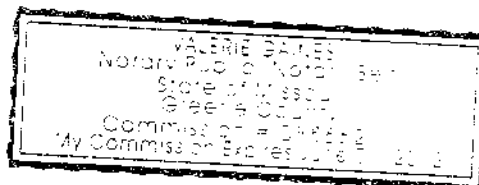 VALERIE GAINES
Notary Public Notary Seal
State of Missouri
Greene County
Commission #
My Commission Expires June 2012